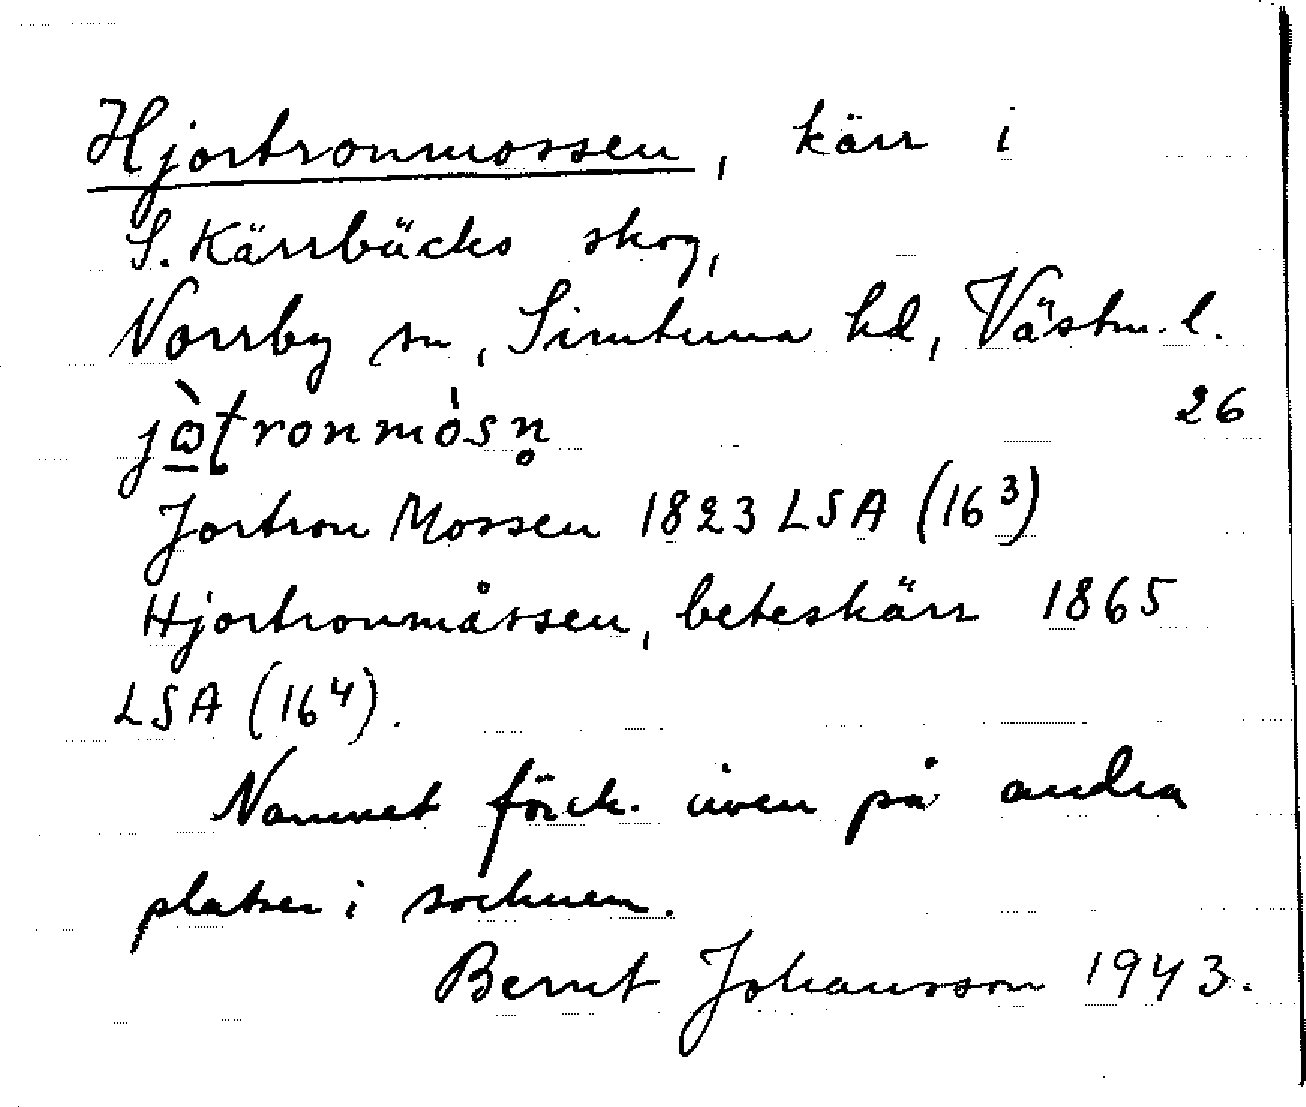 Hjortronmossen, kärr i
S. Kärrbäcks skog,
Norrby sn, Simtuna hd, Västm. l.
26
jò̠ʈronmòsn̥
Jortron Mossen 1823 LSA (16³)
Hjortronmåssen, beteskärr 1865
LSA (16⁴).
Namnet förek. även på andra
platser i socknen.
Bernt Johansson 1943.